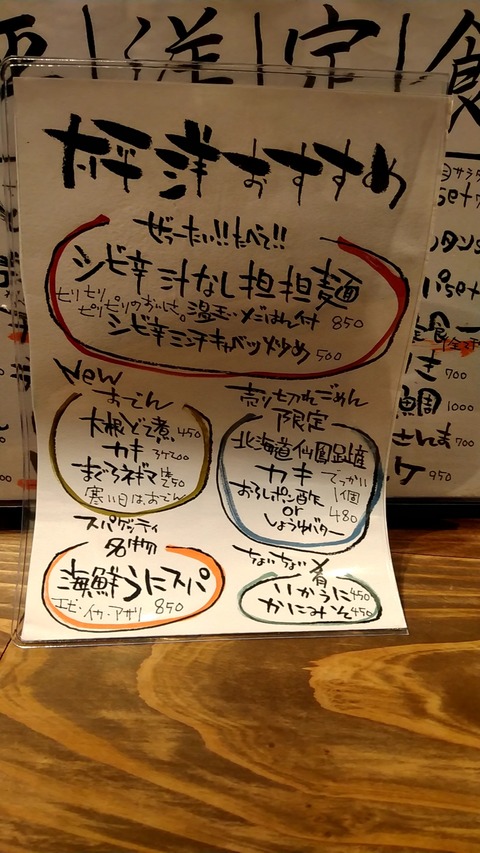 洋定食
坪洋おすすめ
ぜったい!!たべて!!
シビ辛汁なし担担麺
ピリピリのおいしさ。温玉・〆ごはん付 850
シビ辛ミンチキャベツ炒め 500
New
おでん
大根どて煮 450
カキ 3ケ200
まぐろネギマ 250
寒い日は、おでん
売り切れごめん
限定
北海道仙鳳趾産
カキ でっかい1個
おろしポン酢 480
or
しょうゆバター
スパゲッティ
名物
海鮮うにスパ
エビ・イカ・アサリ 850
ちょいちょい肴
いかうに 450
かにみそ 450
700
鯛 1000
さんま 700
950